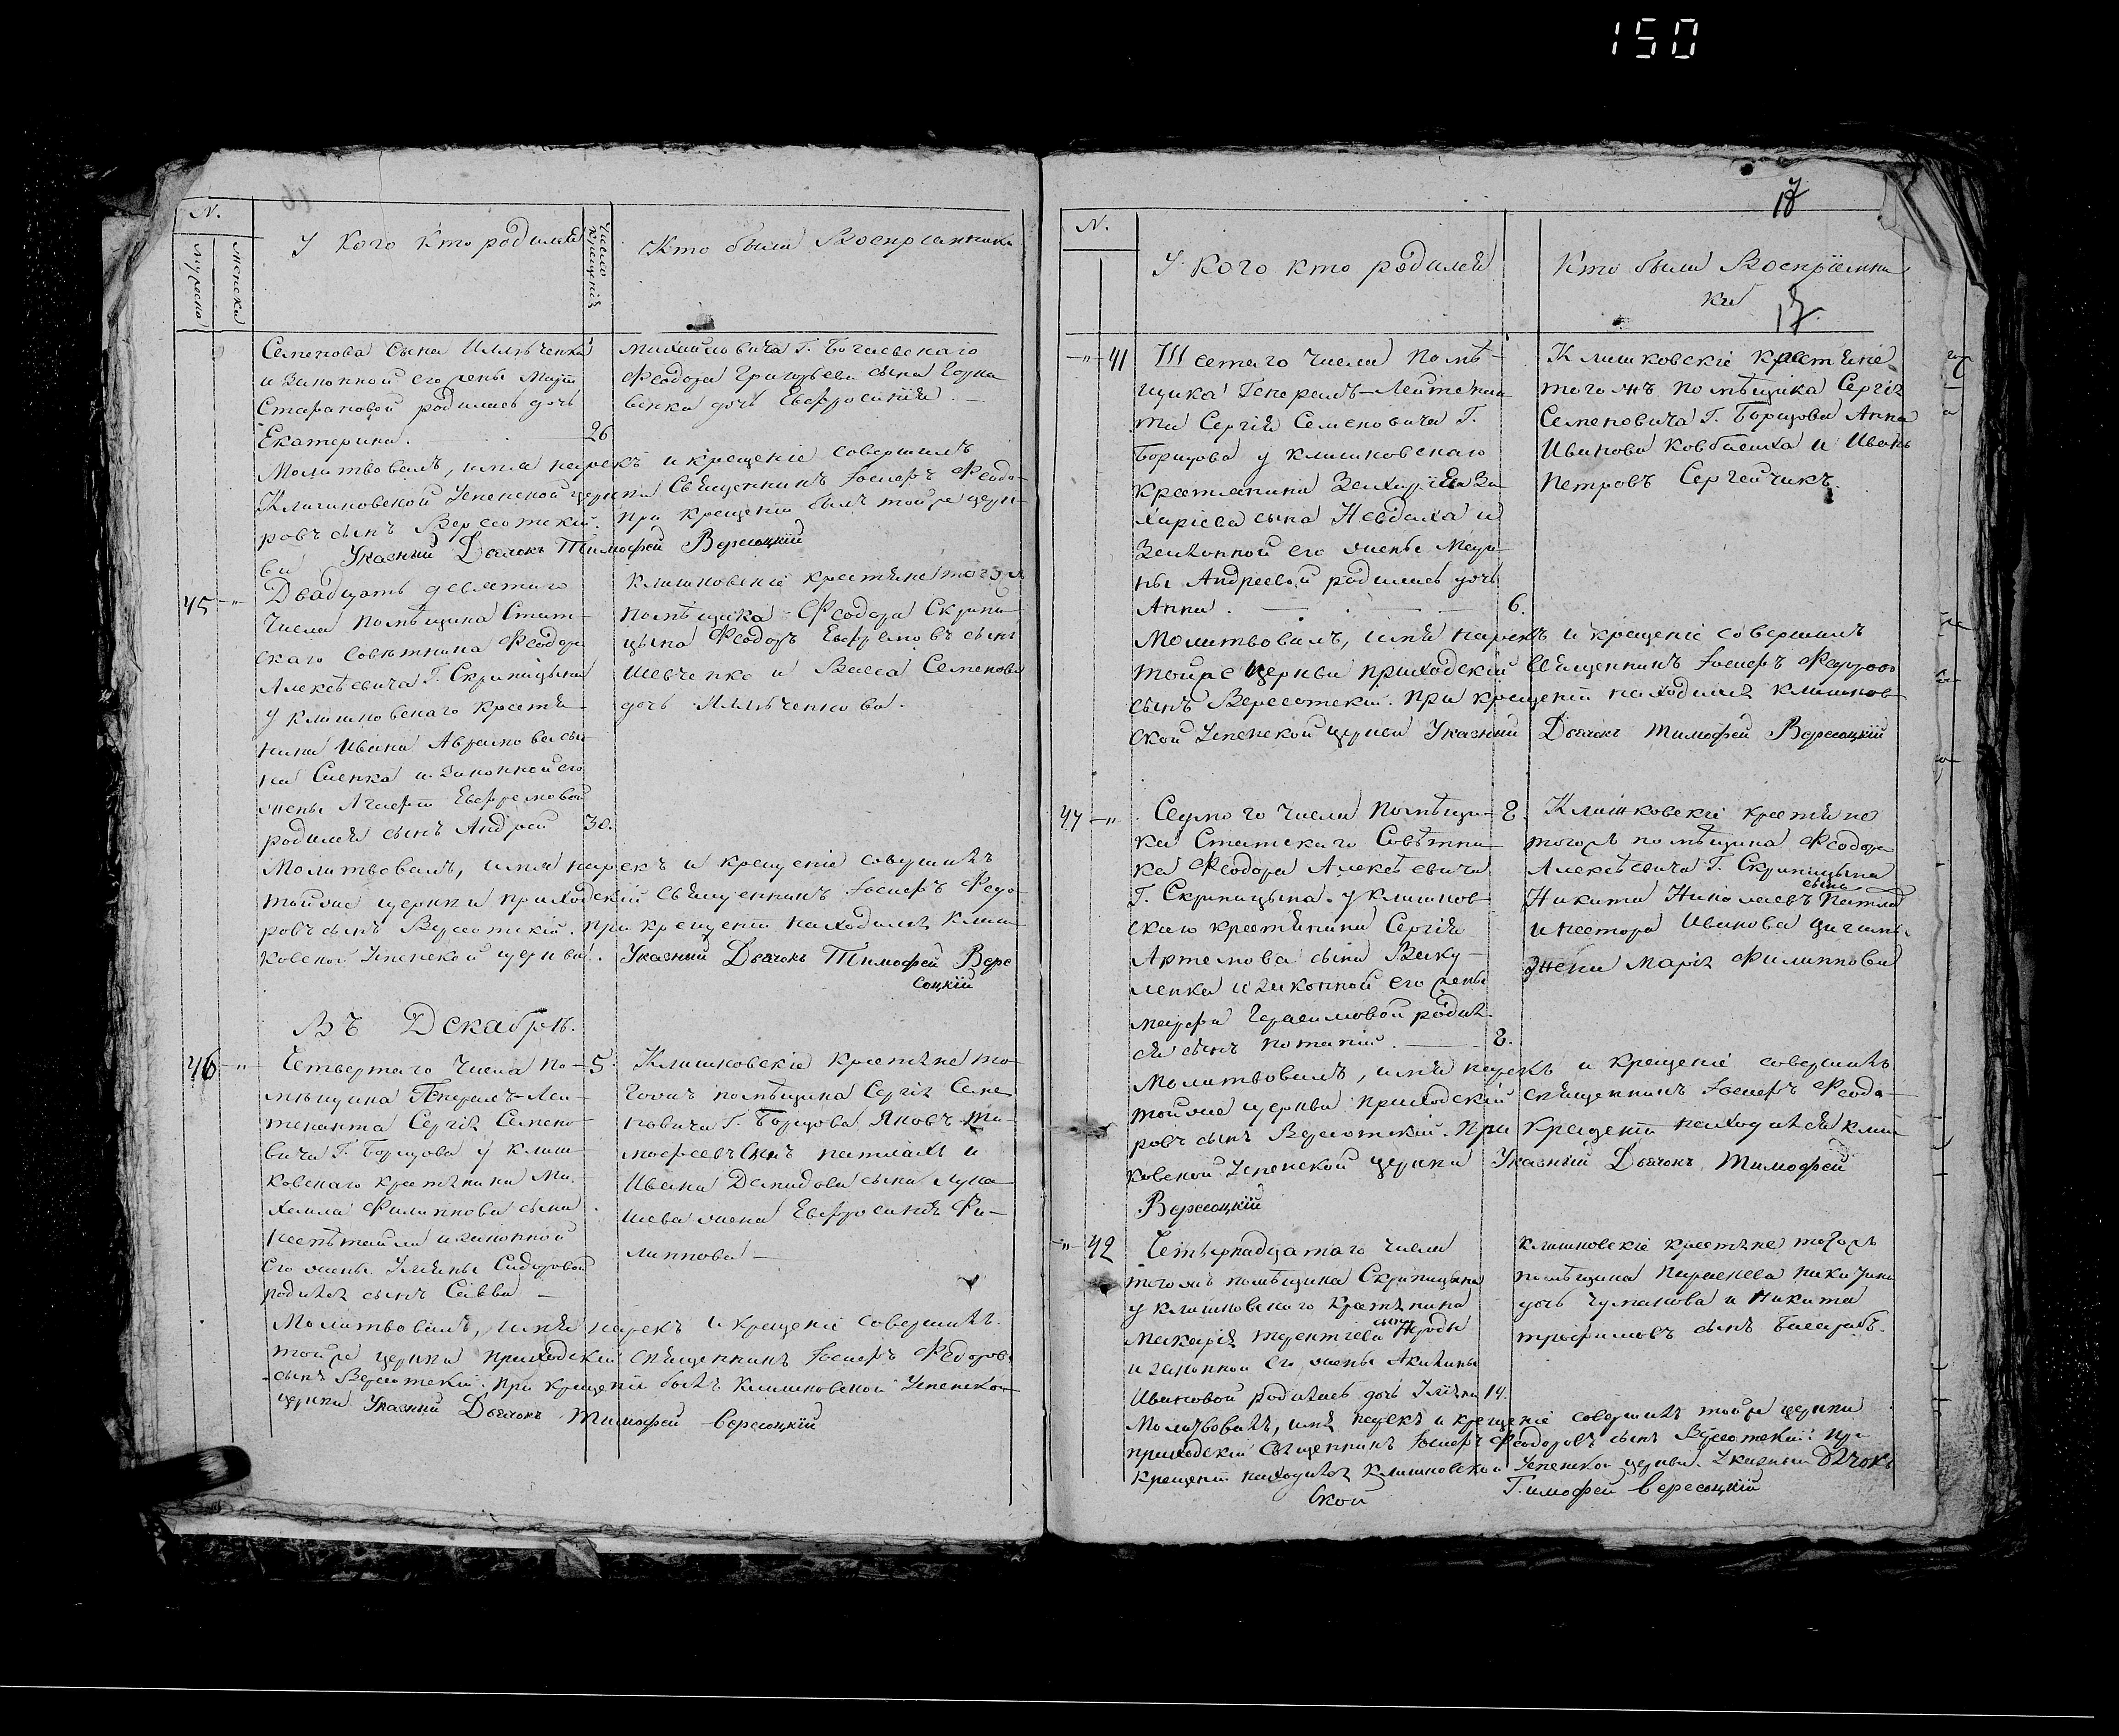 150
N.
Мужеска
Женска
У кого кто родился
Число крещенія
Кто были Воспріемники
Семенова сына Илльченка
и Законной его жены Маріи
Стефановой родилась дочь
Екатерина. 26
Михайловича Г.
Феодора Григорьева сына
дочь Евфросинія.
Молитвовалъ, имя нарекъ и крещеніе совершилъ
Клишковской Успенской церкви Священникъ Іосифъ Феодо-
ровъ сынъ Вересотскій. При крещеніи былъ тойже церк-
ви Указный Дьячокъ Тимофей Вересоцкій
45 - "
Двадцать девятаго
числа помѣщика Стат-
скаго Совѣтника Феодора
Алексѣевича Г. Скрипицына
у клишковскаго крестья-
нина Ивана Аврамова сы-
на и законной его
жены Агафіи Евфремовой
родился сынъ Андрей 30.
Клишковскіе крестьяне того ж
помѣщика Феодора Скрипи-
цына Феодоръ Евфремовъ сынъ
Шевченко и Васса Семенова
дочь Илльченкова.
Молитвовалъ, имя нарекъ и крещеніе совершилъ
тойже церкви приходскій Священникъ Іосифъ Федо-
ровъ сынъ Вересотскій. при крещеніи находился Клиш-
ковской Успенской церкви. Указный Дьячокъ Тимофей Вере
соцкій
Въ Декабрѣ.
46 - "
Четвертаго числа по-
мѣщика Генералъ-Лей-
тенанта Сергія Семено-
вича Г. Борщова у клиш-
ковскаго крестьянина Ми-
хаила Филиппова сына
и законной
его жены Ульяны Сидоровой
родился сынъ Савва -
5.
Клишковскіе крестьяне то-
гожъ помѣщика Сергія Семе
новича Г. Борщова Яковъ Ти-
мофеевъ сынъ и
Ивана Демидова сына
жена Евфросинія Фи-
липпова -
Молитвовалъ, имя нарекъ и крещеніе совершилъ.
тойже церкви приходскій священникъ Іосифъ Федоровъ
сынъ Вересотскій. при крещеніи былъ Клишковской Успенской
церкви Указный Дьячокъ Тимофей Вересоцкій
17
N.
У кого кто родился
Кто были Воспріемни
ки
17.
- " - 41
Шестаго числа помѣ-
щика Генералъ-Лейтенан-
та Сергія Семеновича Г.
Борщова у клишковскаго
крестьянина Захарія За-
харіева сына и
Законной его жены Мари-
ны Андреевой родилась дочь
Анна. 6.
Клишковскіе крестьяне
того жъ помѣщика Сергія
Семеновича Г. Борщова Анна
Иванова и Иванъ
Петровъ Сергейчикъ.
Молитвовалъ, имя нарекъ и крещеніе совершилъ
тойже церкви приходскій Священникъ Іосифъ
сынъ Вересотскій. при крещеніи находился клишков
ской Успенской церкви Указный Дьячокъ Тимофей Вересоцкій
47 - "
Седмого числа помѣщи-
ка Статскаго Совѣтни
ка Феодора Алексѣевича
Г. Скрипицына у клишков
скаго крестьянина Сергія
Артемова сынаВаку-
ленка и законной его жены
Марфы Герасимовой родил-
ся сынъ Потапій. 8.
8.
Клишковскіе крестьяне
тогожъ помѣщика Феодора
Алексѣевича Г. Скрипицына
Никита Николаевъ сынъ
и Нестора Иванова
жена Марія Филиппова
Молитвовалъ, имя нарекъ и крещеніе совершилъ
тойже церкви приходскій священникъ Іосифъ Феодо-
ровъ сынъ Вересотскій. При крещеніи находился клиш-
ковской Успенской церкви Указный Дьячокъ Тимофей
Вересоцкій
- " - 42
Четырнадцатаго числа
тогожъ помѣщика Скрипицына
у клишковскаго крестьянина
Макарія Терентіева сына
и законной его жены Акилины
Ивановой родилась дочь Уліяна 14.
клишковскіе крестьяне тогожъ
помѣщика
дочь Чумакова и Никита
Трофимовъ сынъ
Молитвовалъ, имя нарекъ и крещеніе совершилъ тойже церкви
приходскій Священникъ Іосифъ Феодоровъ сынъ Вересотскій. При
крещеніи находился Клишковской Успенской церкви. Указный дьячокъ
ской Тимофей Вересоцкій